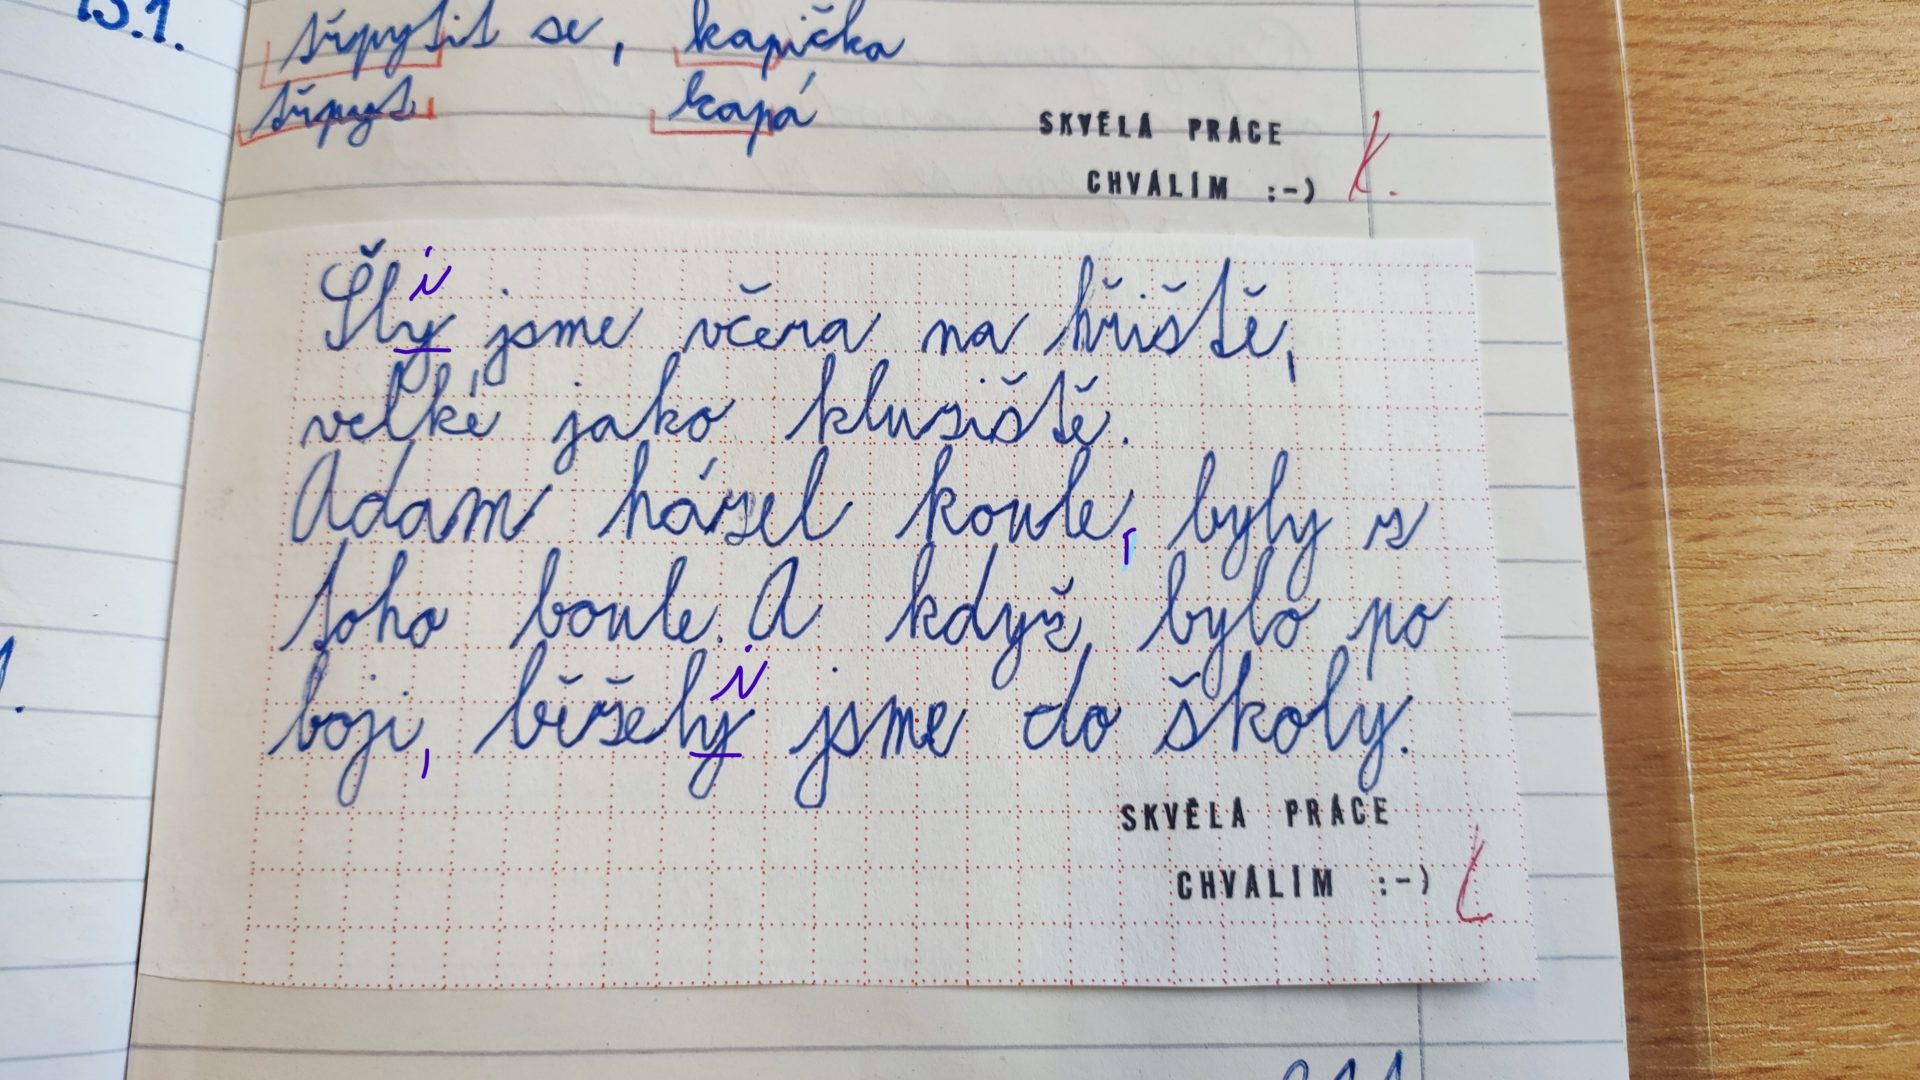 13.1.
třpytit se, kapička
třpyt kapá
SKVĚLÁ PRÁCE
CHVÁLÍM :-) K.
Šly jsme včera na hřiště,
i
velké jako kluziště.
Adam házel koule, byly z
toho boule. A když bylo po
boji, běželý jsme do školy.
i
SKVĚLÁ PRÁCE
CHVÁLÍM :-)